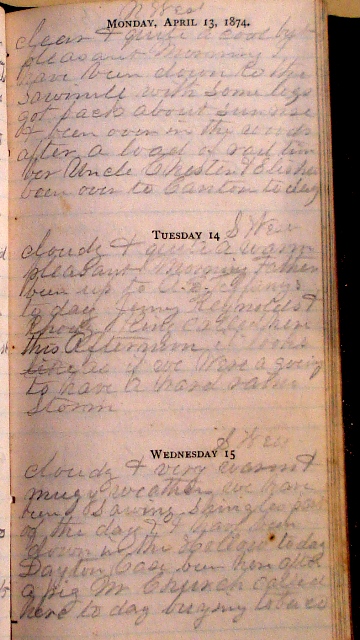 N West
MONDAY, APRIL 13, 1874.
clear & quite a cool but
pleasant Morning I
have been down to the
Sawmill with some logs
got back about sunrise
& been over in the woods
after a load of rail tim
ber Uncle Chester & Elisha
been over to Canton today
S West
TUESDAY 14
cloudy & quite a warm
pleasant Morning Father
been up to
to day Jerry Reynolds &
King called here
this Afternoon it looks
as if we were a going
to have a hard rain
Storm
S West
WEDNESDAY 15
cloudy & very warm &
mugy weather we have
been Sawing Shingles part
of the day & I have been
down in the Hollow today
Dayton Case been here after
a pig M Church called
here to day buying